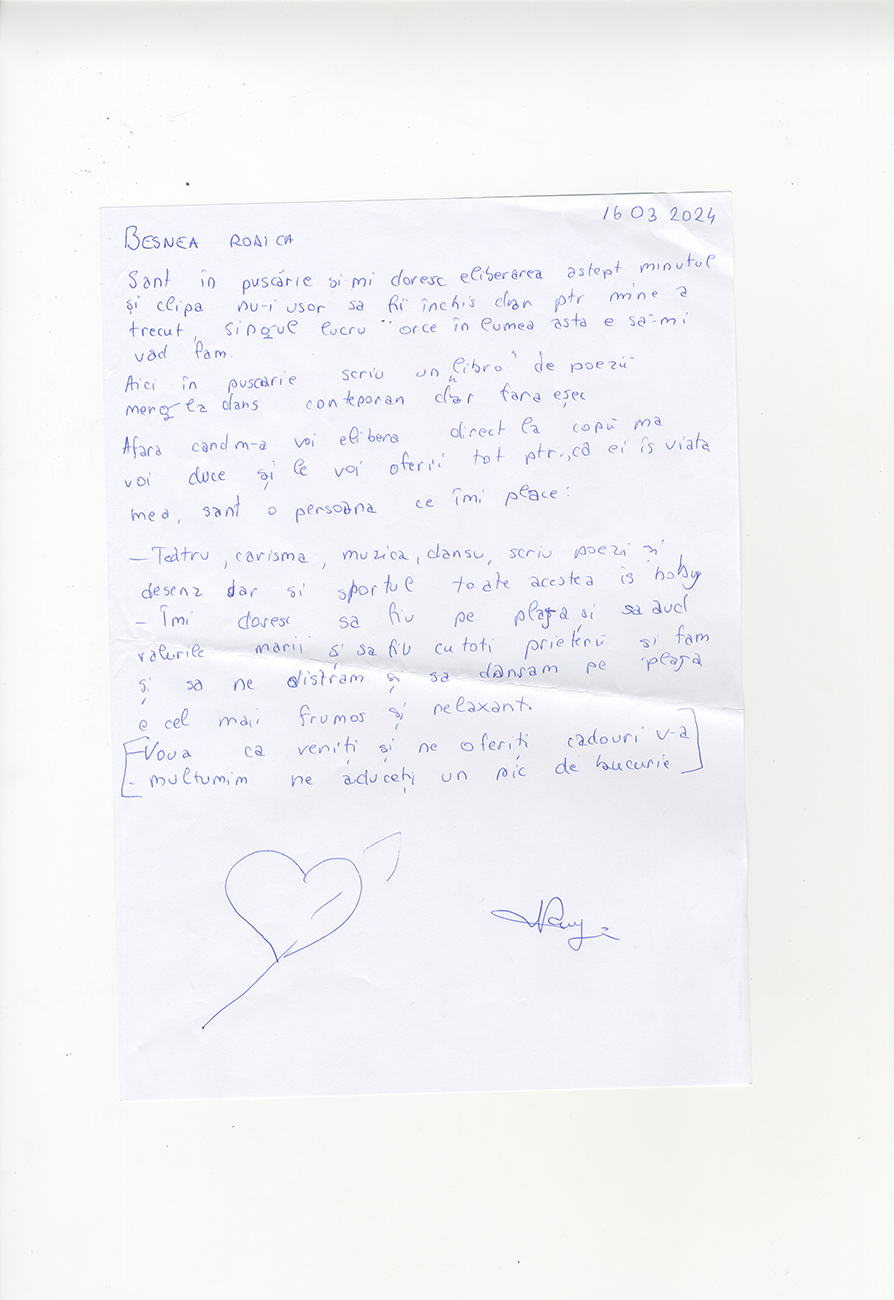 16 03 2024
BESNEA RODICA
Sant în puscărie si-mi doresc eliberarea astept minutul
și clipa nu-i usor sa fii închis dar ptr mine a
trecut, singul lucru orce în lumea asta e sa-mi
văd fam.
Aici în puscarie scriu un "libro" de poezii
merg la dans conteporan dar fara eșec
Afara cand m-a voi elibera direct la copii ma
voi duce și le voi oferii tot ptr., că ei îs viata
mea, sant o persoana ce îmi place:
- Teatru, carisma, muzica, dansu, scriu poezii și
desenz dar si sportul toate acestea is hoby
- Îmi doresc sa fiu pe plaja și sa aud
valurile marii și sa fiu cu toti prietenii si fam
și sa ne distram și sa dansam pe plaja
e cel maii frumos și relaxant.
-Voua ca veniți și ne oferiți cadouri v-a
- multumim ne aduceți un pic de bucurie